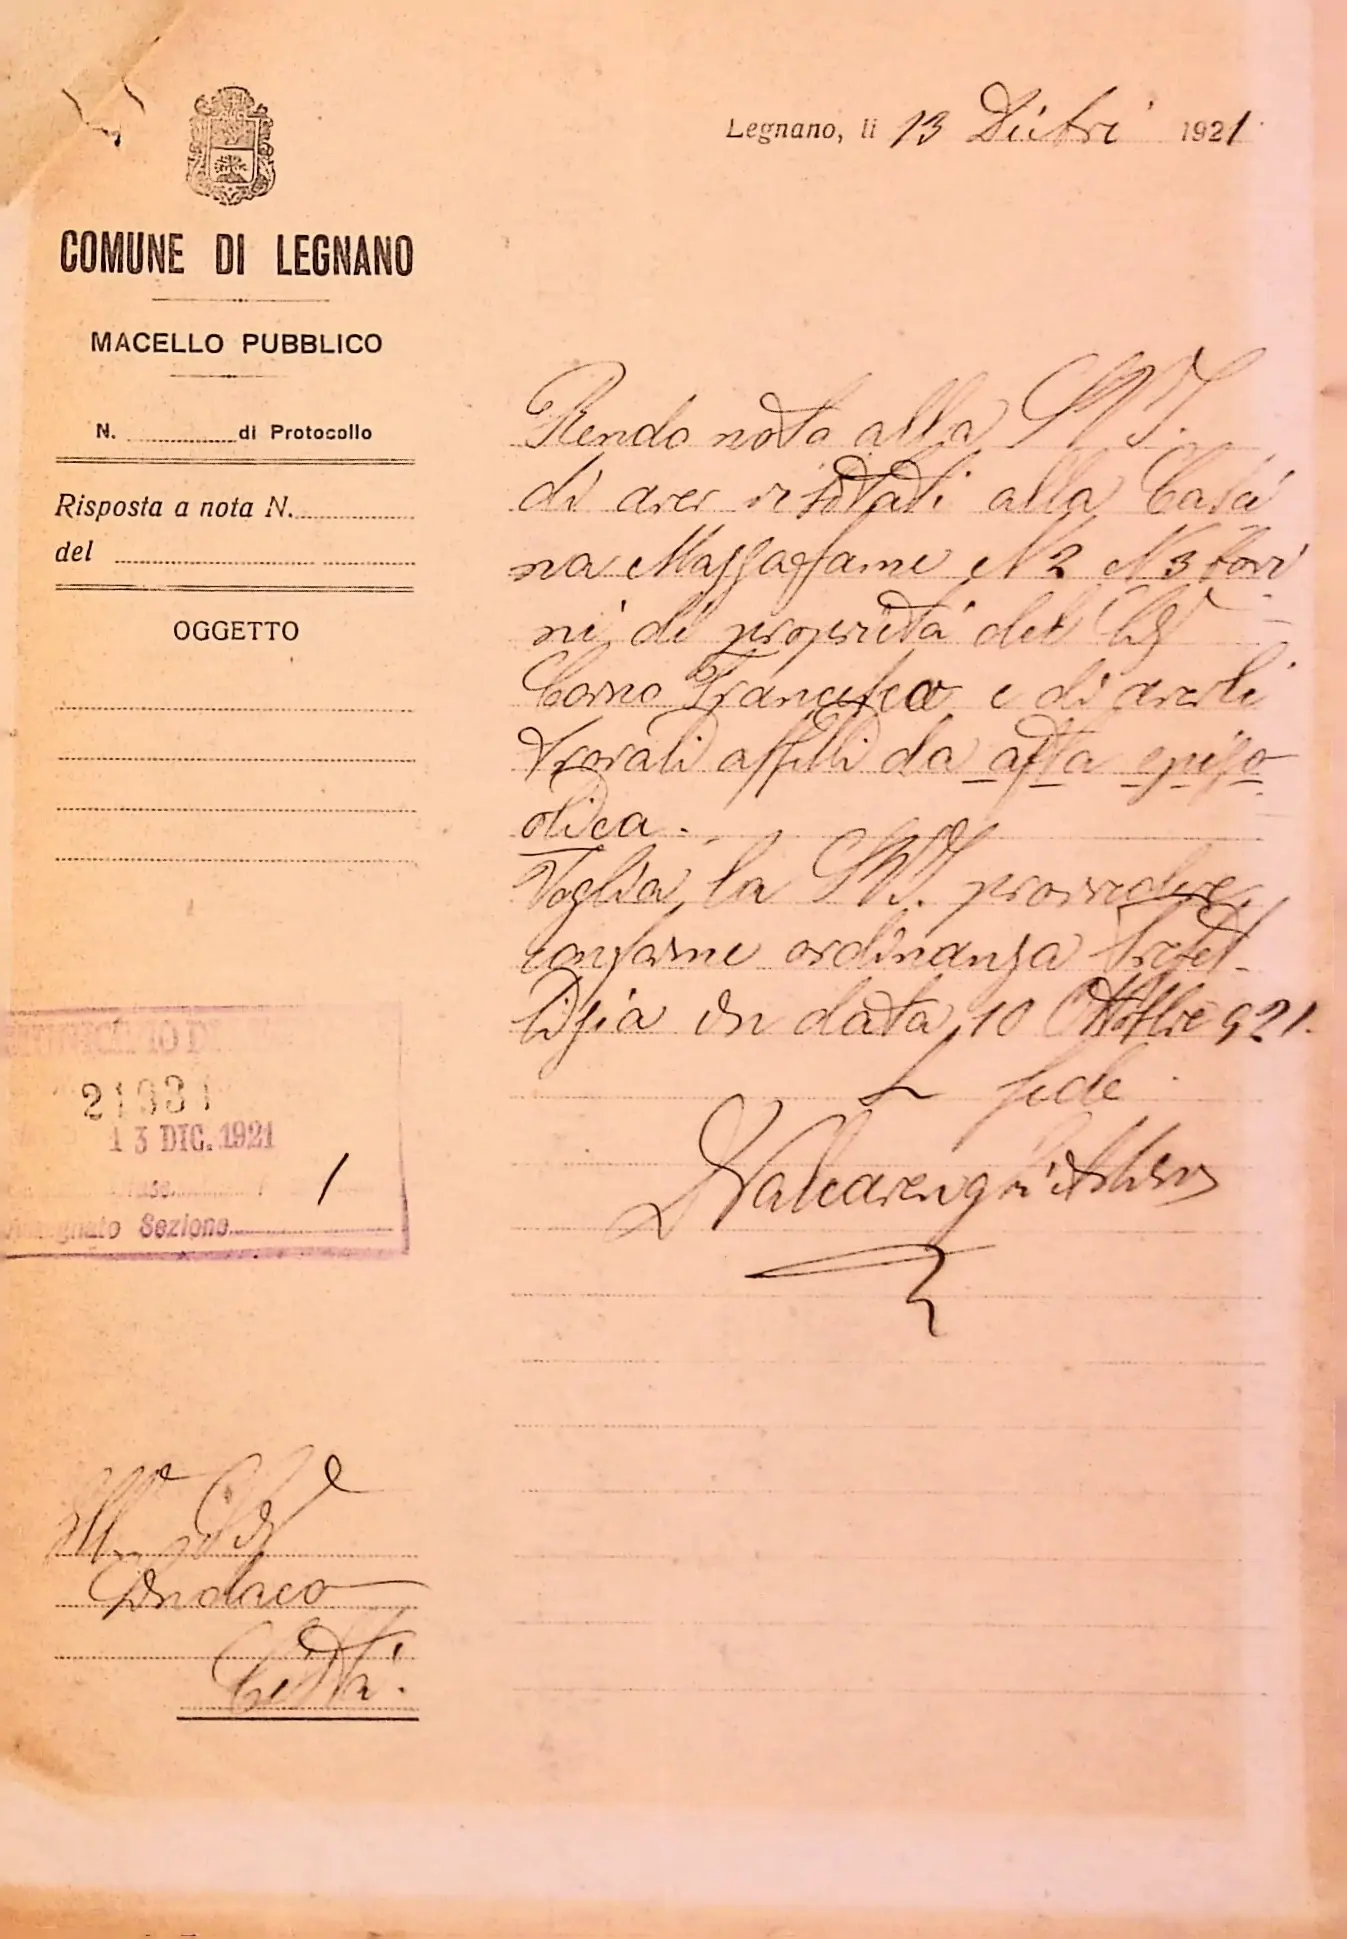 Legnano, li 13 Dicbri 1921
COMUNE DI LEGNANO
MACELLO PUBBLICO
N. di Protocollo
Risposta a nota N.
del
OGGETTO
Rendo nota alla S V I.
di aver visitati alla Casci
na Mazzafame N 2 N 3 bovi
ni di proprietà del Sig
Corno Francesco e di averli
trovati affetti da afta epizo
otica.
Voglia la S V I. provvedere
conforme ordinanza Prefet-
tizia in data 10 Ottobre 921.
In fede
Valcarenghi
MUNICIPIO DI
13 DIC. 1921
Assegnato Sezione
1
Ill.mo Sig
Sindaco
Città.